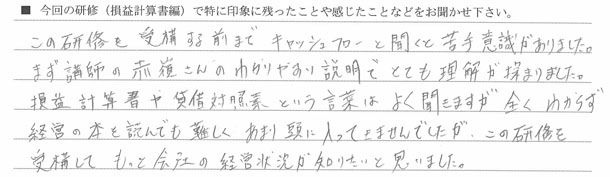 ■ 今回の研修（損益計算書編）で特に印象に残ったことや感じたことなどをお聞かせ下さい。
この研修を受構する前までキャッシュフローと聞くと苦手意識がありました。
まず講師の赤嶺さんのわかりやあり説明でとても理解が深まりました。
損益計算書や貸借対照素という言葉はよく聞きますが全くわからず
経営の本を読んでも難しくあまり頭に入ってきませんでしたが、この研修を
受構してもっと会社の経営状況が知りたいと思いました。